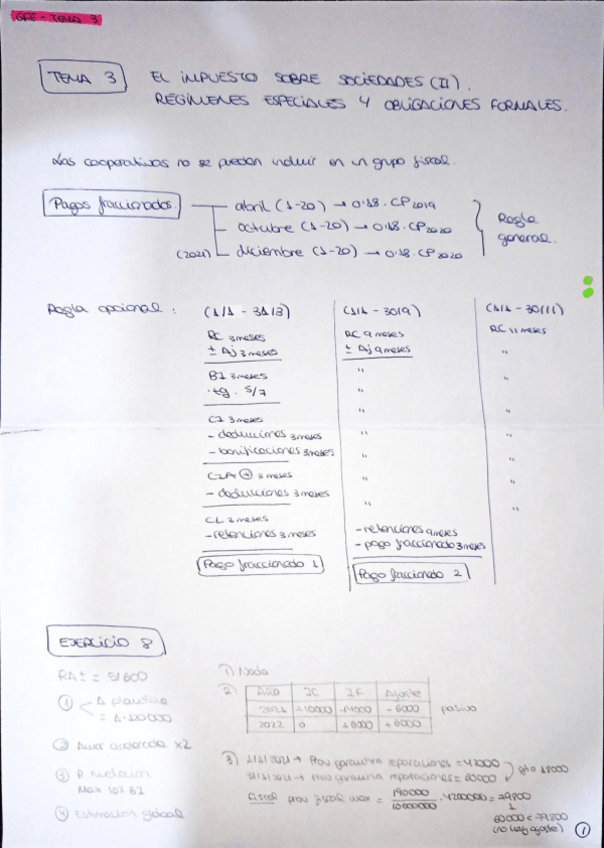 GFE - TEMA 3
TEMA 3
EL IMPUESTO SOBRE SOCIEDADES (II).
REGÍMENES ESPECIALES Y OBLIGACIONES FORMALES.
Las cooperativas no se pueden incluir en un grupo fiscal.
Pagos fraccionados.
abril (1-20) → 0'18 · CP2019
octubre (1-20) → 0'18 · CP2020
(2021) diciembre (1-20) → 0'18 · CP2020
Regla
general.
Regla opcional :
(1/1 - 31/3)
RC 3 meses
± Aj 3 meses
BI 3 meses
· tg. 5/7
CI 3 meses
- deducciones 3 meses
- bonificaciones 3 meses
CIA ⊕ 3 meses
- deducciones 3 meses
CL 3 meses
- retenciones 3 meses
Pago fraccionado 1
(1/1 - 30/9)
RC 9 meses
± Aj 9 meses
"
"
"
"
"
"
- retenciones 9 meses
- pago fraccionado 3 meses
Pago fraccionado 2
(1/1 - 30/11)
RC 11 meses
"
"
"
"
"
"
"
EJERCICIO 8
RAI = 51600
① < Δ plantilla
= Δ · 120000
② Amor acelerada x2
③ R. Nivelación
Max 10% BI
④ Estimación global
1) Nada
2) Año IC IF Ajuste
2021 +10000 -6000
2022 0 +6000 +6000
pasivo
3) 1/1/2021 → Prov garantía reparaciones = 42000
31/12/2021 → Prov garantía reparaciones = 60000
gto 18000
Fiscal prov fiscal max = 190000 / 10000000 · 4200000 = 79800
↓
60000 < 79800
(no hay ajuste)
①